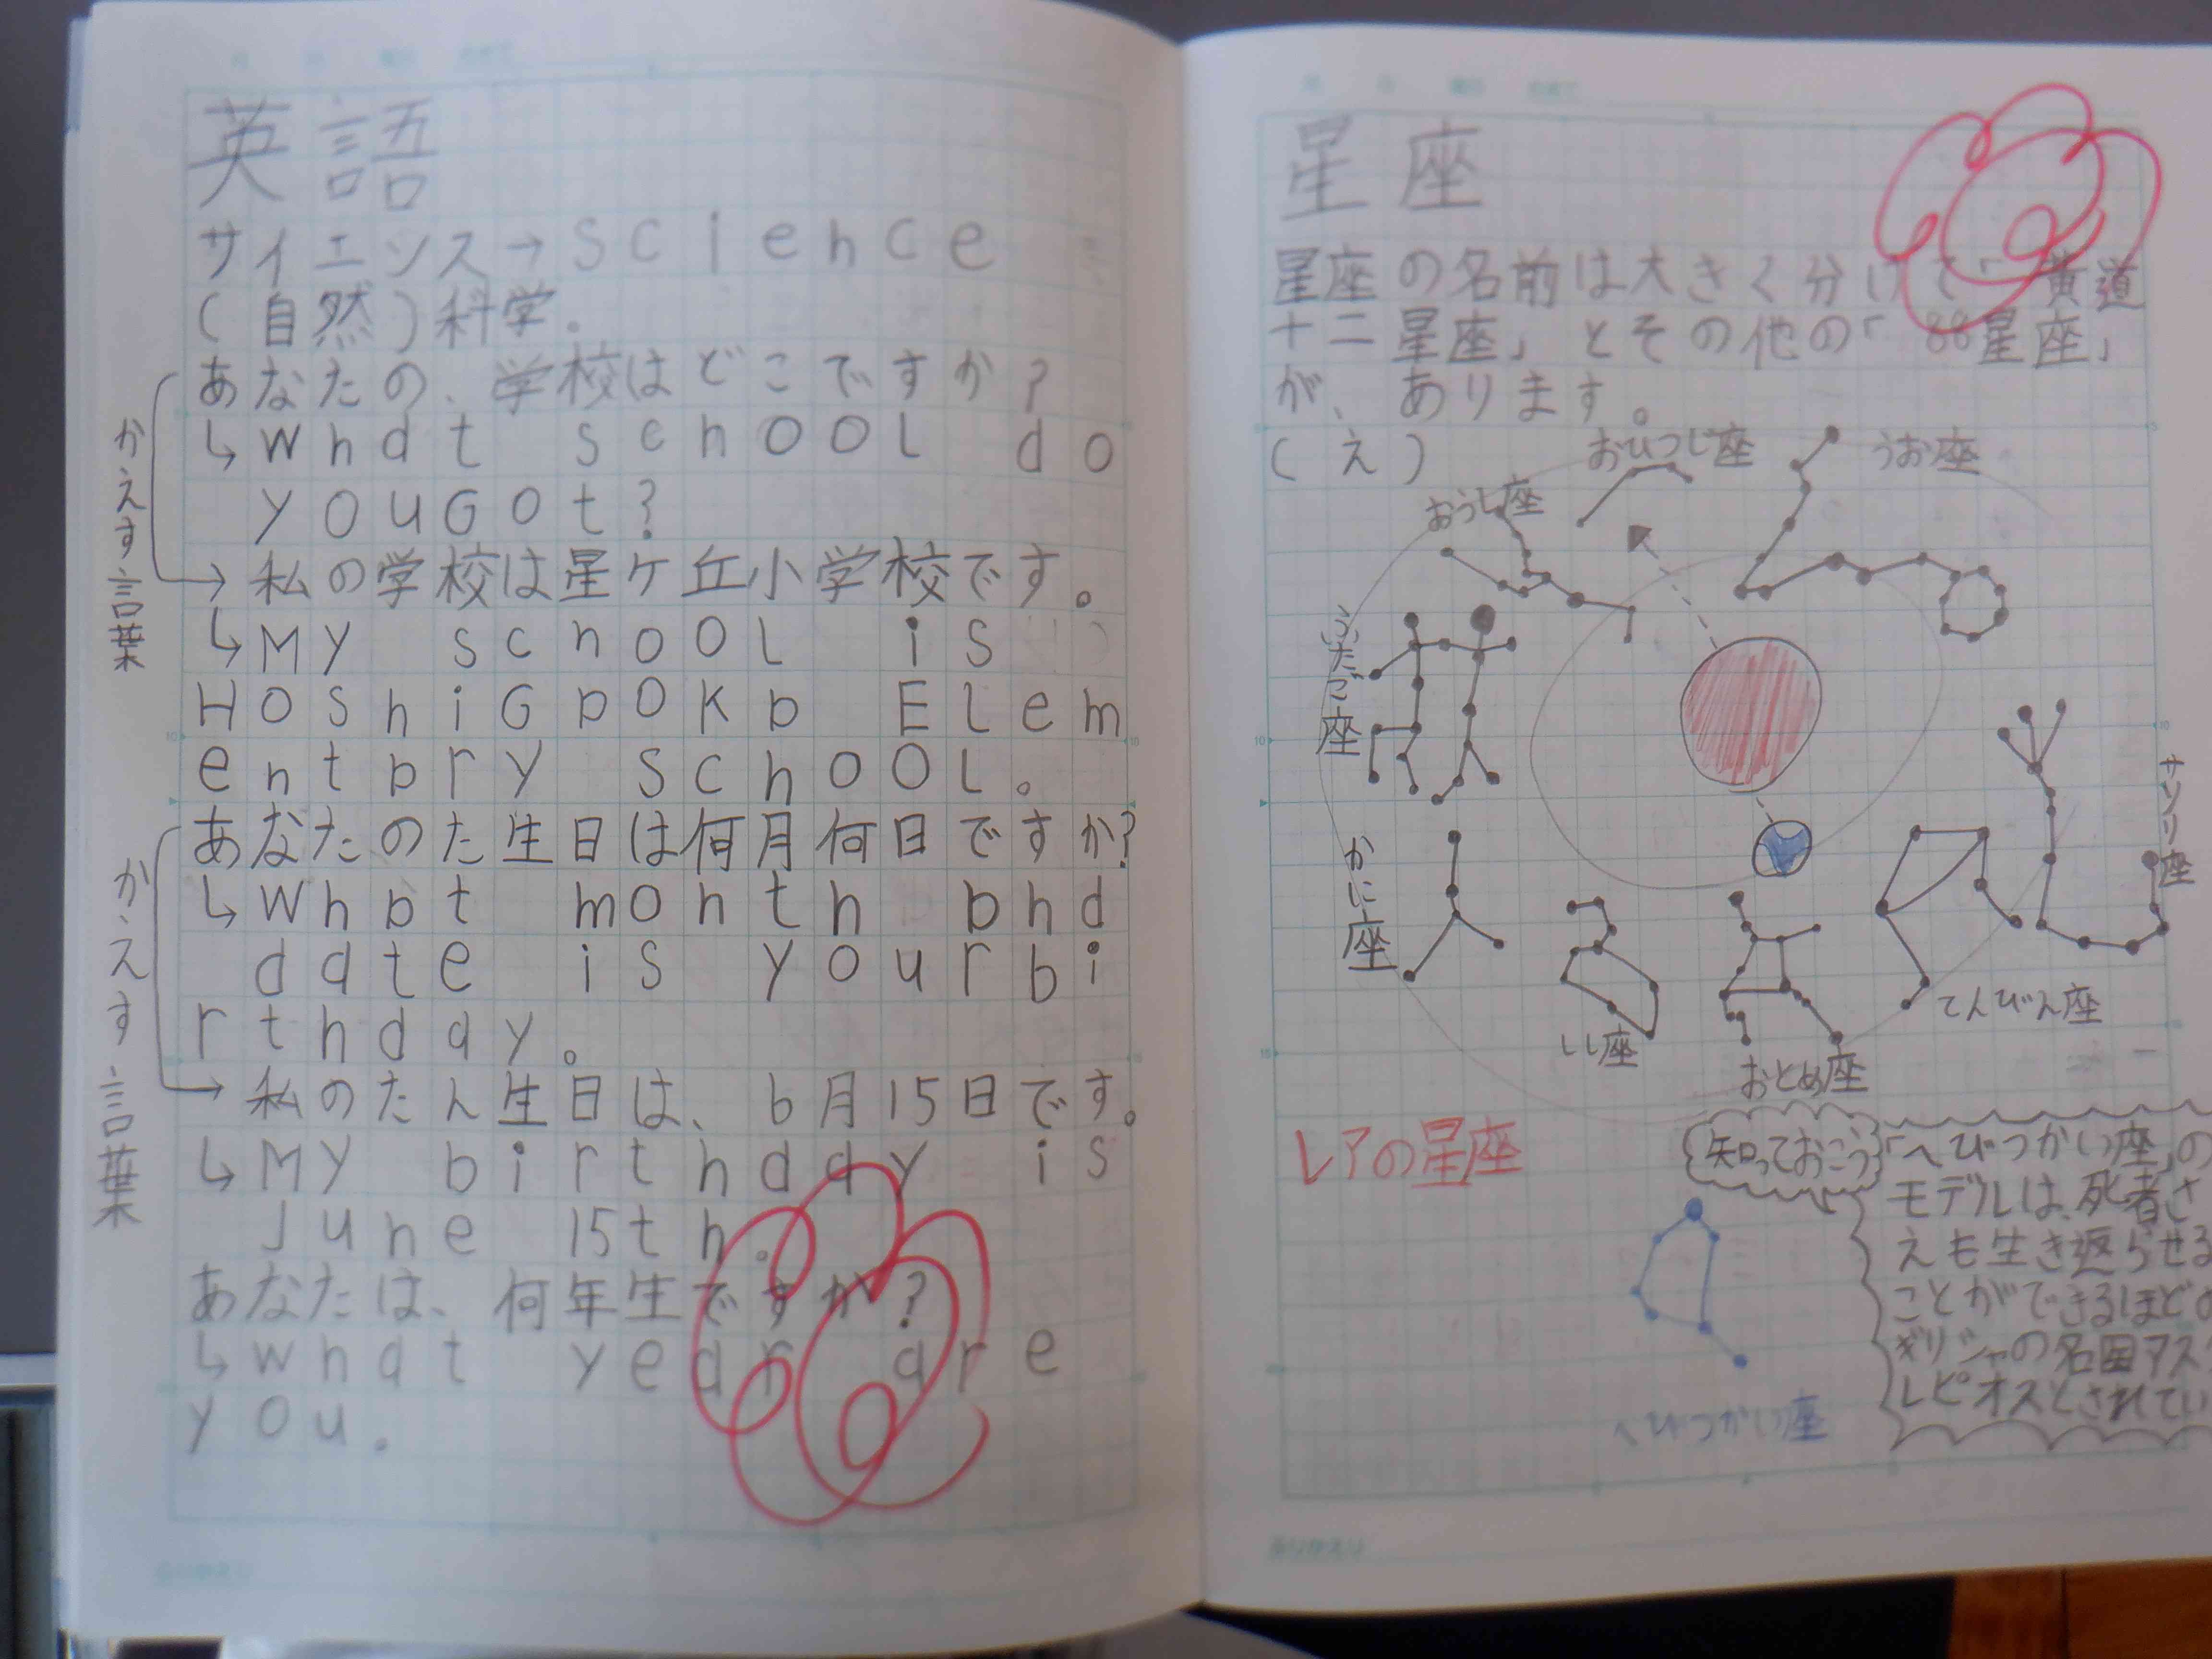 英語
サイエンス→science
(自然)科学。
あなたの、学校はどこですか?
↳what school do
youGot?
かえす言葉
→私の学校は星ケ丘小学校です。
↳My school is
HoshiGaoKa Elem
entary school。
あなたのた生日は何月何日ですか?
↳What month and
date is yourbi
rthday。
かえす言葉
→私のたん生日は、6月15日です。
↳My birthday is
June 15th.
あなたは、何年生ですか?
↳what year are
you.
星座
星座の名前は大きく分けて「黄道
十二星座」とその他の「88星座」
が、あります。
(え)
おひつじ座
うお座
おうし座
ふたご座
サソリ座
かに座
しし座
おとめ座
てんびん座
レアの星座
知っておこう
「へびつかい座」の
モデルは、死者さ
えも生き返らせる
ことができるほど
ギリシャの名医アス
レピオスとされてい
へびつかい座